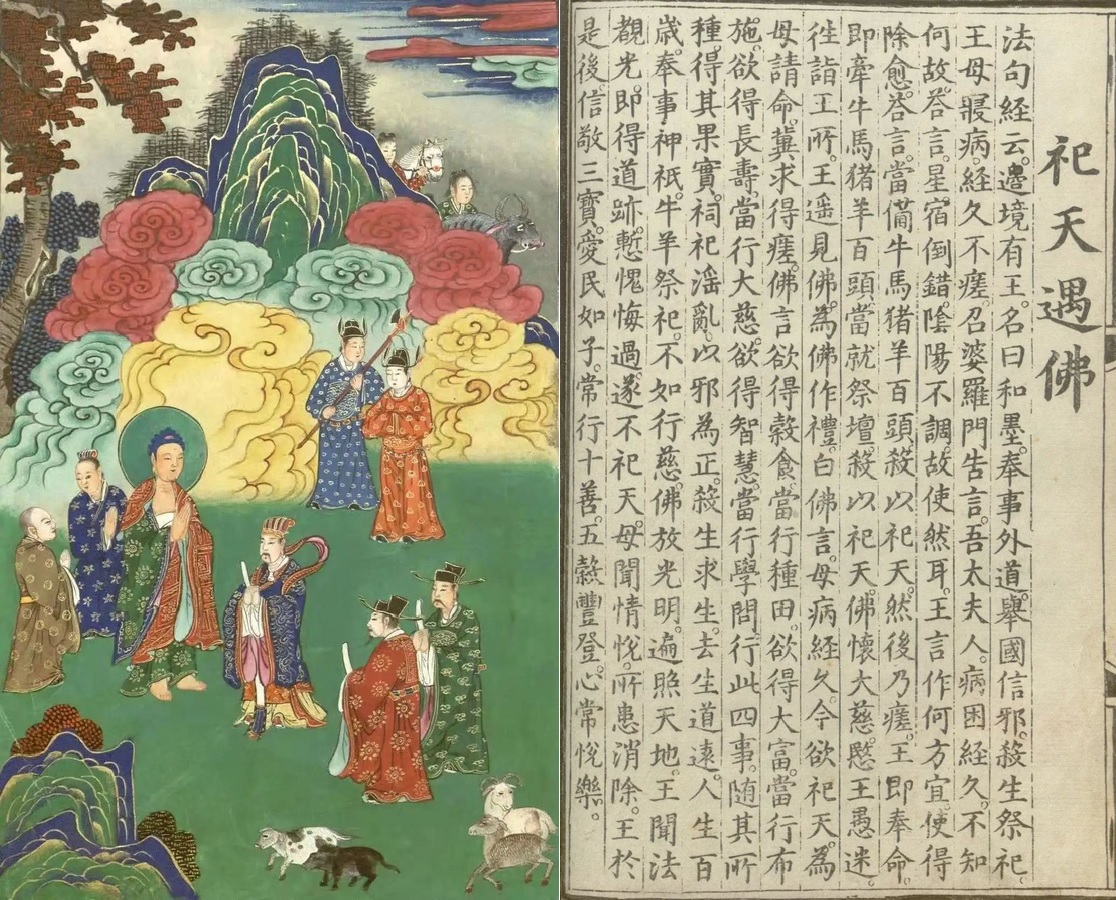 祀天遇佛
法句經云。邊境有王。名曰和墨。奉事外道。舉國信邪。殺生祭祀。
王母寢病。經久不瘥。召婆羅門告言。吾太夫人。病困經久。不知
何故。荅言。星宿倒錯。陰陽不調。故使然耳。王言作何方宜。便得
除愈。荅言。當備牛馬猪羊百頭。殺以祀天。然後乃瘥。王即奉命。
即牽牛馬猪羊百頭。當就祭壇。殺以祀天。佛懷大慈。愍王愚迷。
徃詣王所。王遥見佛。為佛作禮。白佛言。母病經久。今欲祀天。為
母請命。冀求得瘥。佛言欲得穀食。當行種田。欲得大富。當行布
施。欲得長壽。當行大慈。欲得智慧。當行學問。行此四事。随其所
種。得其果實。祠祀淫亂。以邪為正。殺生求生。去生道遠。人生百
歲。奉事神祇。牛羊祭祀。不如行慈。佛放光明。遍照天地。王聞法
觀光。即得道跡。慙愧悔過。遂不祀天。母聞情悅。所患消除。王於
是後。信敬三寶。愛民如子。常行十善。五穀豐登。心常悅樂。